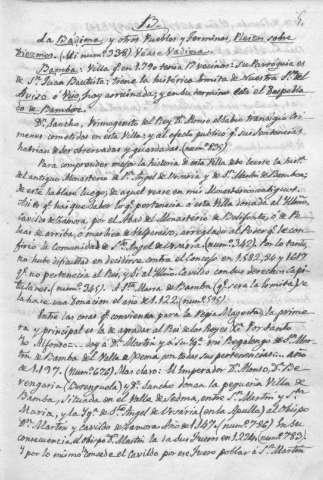 17
La Badima y otros Pueblos y Terminos, Pleiton sobre
Diezmos (Mi num. 338) Vease Vadima.
Bamba: Villa q.e en 1.790 tenia 17 vecinos: Su Parroquia es
de S.n Juan Bautista: Tiene la histórica Ermita de Nuestra S.ra del
Aviso ó Viso, hoy arruinada; y en su termino este el Despobla
do de Bamba.
D.n Sancho, Primogenito del Rey D.n Alonso el Sabio transigio Cri
menes cometidos en esta Villa; y al efecto publico q.e sus Sentencias
habrian de ser observadas y guardadas (num.
Para comprender mejor la historia de esta Villa debe leerse la hist.a
del antiguo Monasterio de S.t Angel de Ursaria y de S.n Martin de Bamba;
de este hablaré luego, de aquel vease en mi
q.e haya de saber lo q.e pertenecia á esta Villa donada al Ill.mo
Cavildo de Zamora, por el Abad del Monasterio de
lear de arriba, ó mas bien de arreglado al Poder q.e le con
firio la Comunidad de S.t Angel de Ursaria (num. 342). Por lo tanto,
no hubo dificultad en decidirse contra el Concejo en 1.592, 94 y 1617
q.e no pertenecia al Rei, y Si al Ill.mo Cavildo con sus derechos Capi
tulares (num. 345). A S.ta Maria de Bamba (q.e sera la Ermita) se
la hace una Donacion el año de 1.122 (num. 595).
Entre las cosas q.e convienen para la Regia Magestad, la prime
ra y principal es la de agradar al Rei de los Reyes X.to Por tanto
Yo Alfonso... doy á D.n Martin y á Su Yg.a mi Regalengo de S.n Mar
tin de Bamba del Valle de Xema, con todas sus pertenencias... año
de 1.137. (num. 676). Mas claro: El Imperador D.n Alonso, D.a Be
rengaria (Berenguela) y D.n Sancho donan la pequeña Villa de
Bamba, situada en el Valle de Sedma, entre S.n Martin y S.ta
Maria, y la Yg.a de S.t Angel de Ursaria (en la Apulla) al Obispo
D.n Martin y Cavildo de Zamora Año de 1.147 (num. 756) En su
consecuencia, el Obispo D.n Martin la da sus Fueros en 1.224 (num. 783)
y por lo mismo concede el Cavildo por ese Fuero poblar á S.n Martin